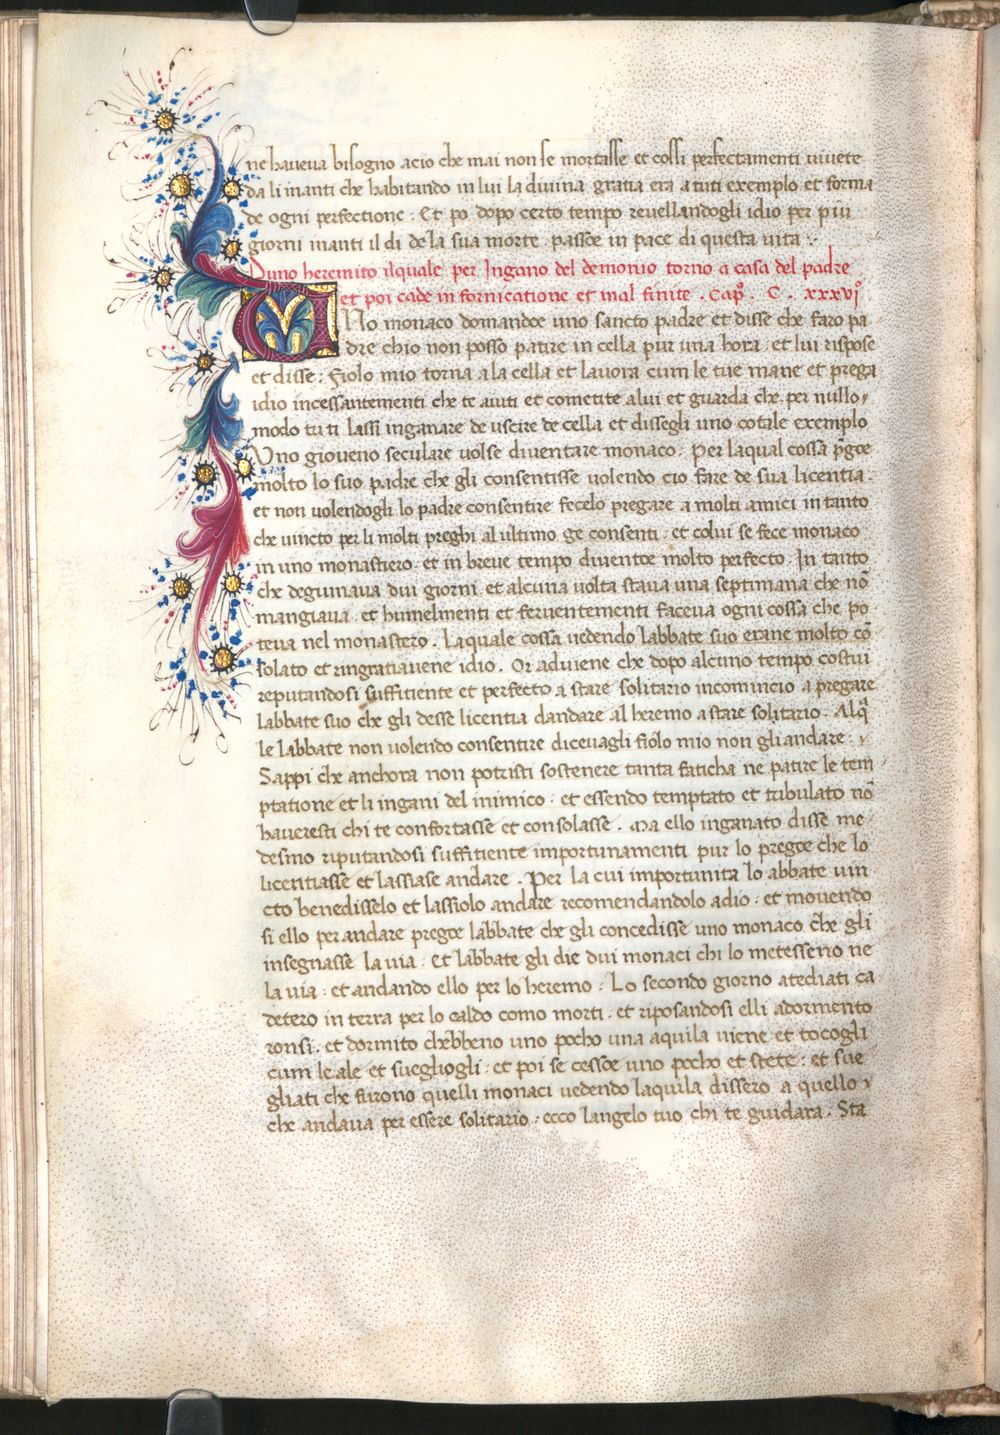 ne haveva bisogno acio che mai non se mortasse et cossi perfectamenti vivete
da li inanti che habitando in lui la divina gratia era a tuti exemplo et forma
de ogni perfectione · Et po dopo certo tempo revellandogli idio per piu
giorni inanti il di de la sua morte · passoe in pace di questa vita :·
Duno heremito il quale per Ingano del demonio torno a casa del padre
et poi cade in fornicatione et mal finite . Capº . C . xxxviº
VNo monaco domandoe uno sancto padre et disse che faro pa
dre chio non posso patire in cella pur una hora · et lui rispose
et disse : fiolo mio torna a la cella et lavora cum le tue mane et prega
idio incessantementi che te aiuti et cometite a lui et guarda che per nullo
modo tu ti lassi inganare de uscire de cella et dissegli uno cotale exemplo
Vno gioveno seculare volse diventare monaco · Per laqual cossa p̄goe
molto lo suo padre che gli consentisse volendo cio fare de sua licentia .
et non volendogli lo padre consentire fecelo pregare a molti amici in tanto
che vincto per li molti preghi al ultimo ge consenti · et colui se fece monaco
in uno monastiero · et in breve tempo diventoe molto perfecto · In tanto
che degiunava dui giorni · et alcuna volta stava una septimana che nō
mangiava · et humelmenti et ferventementi faceva ogni cossa che po
teva nel monastero . Laquale cossa vedendo labbate suo erane molto cō
solato et ringratiavene idio . Or adviene che dopo alcuno tempo costui
reputandosi suffitiente et perfecto a stare solitario incomincio a pregare
labbate suo che gli desse licentia dandare al heremo a stare solitario · Alq̄
le labbate non volendo consentire dicevagli fiolo mio non gli andare :
Sappi che anchora non potristi sostenere tanta faticha ne patire le tem
ptatione et li ingani del inimico · et essendo temptato et tribulato nō
haveresti chi te confortasse et consolasse . Ma ello inganato disse me
desmo riputandosi suffitiente importunamenti pur lo pregoe che lo
licentiasse et lassiase andare . Per la cui importunita lo abbate vin
cto benedisselo et lassiolo andare recomendandolo adio · et movendo
si ello per andare pregoe labbate che gli concedisse uno monaco che gli
insegnasse la via · et labbate gli die dui monaci chi lo metesseno ne
la via · et andando ello per lo heremo · Lo secondo giorno atediati ca
detero in terra per lo caldo como morti · et riposandosi elli adormento
ronsi · et dormito chebbeno uno pocho una aquila viene et tocogli
cum le ale et svegliogli · et poi se cessoe uno pocho et stete : et sve
gliati che furono quelli monaci vedendo laquila dissero a quello
che andava per essere solitario · ecco langelo tuo chi te guidara · Sta